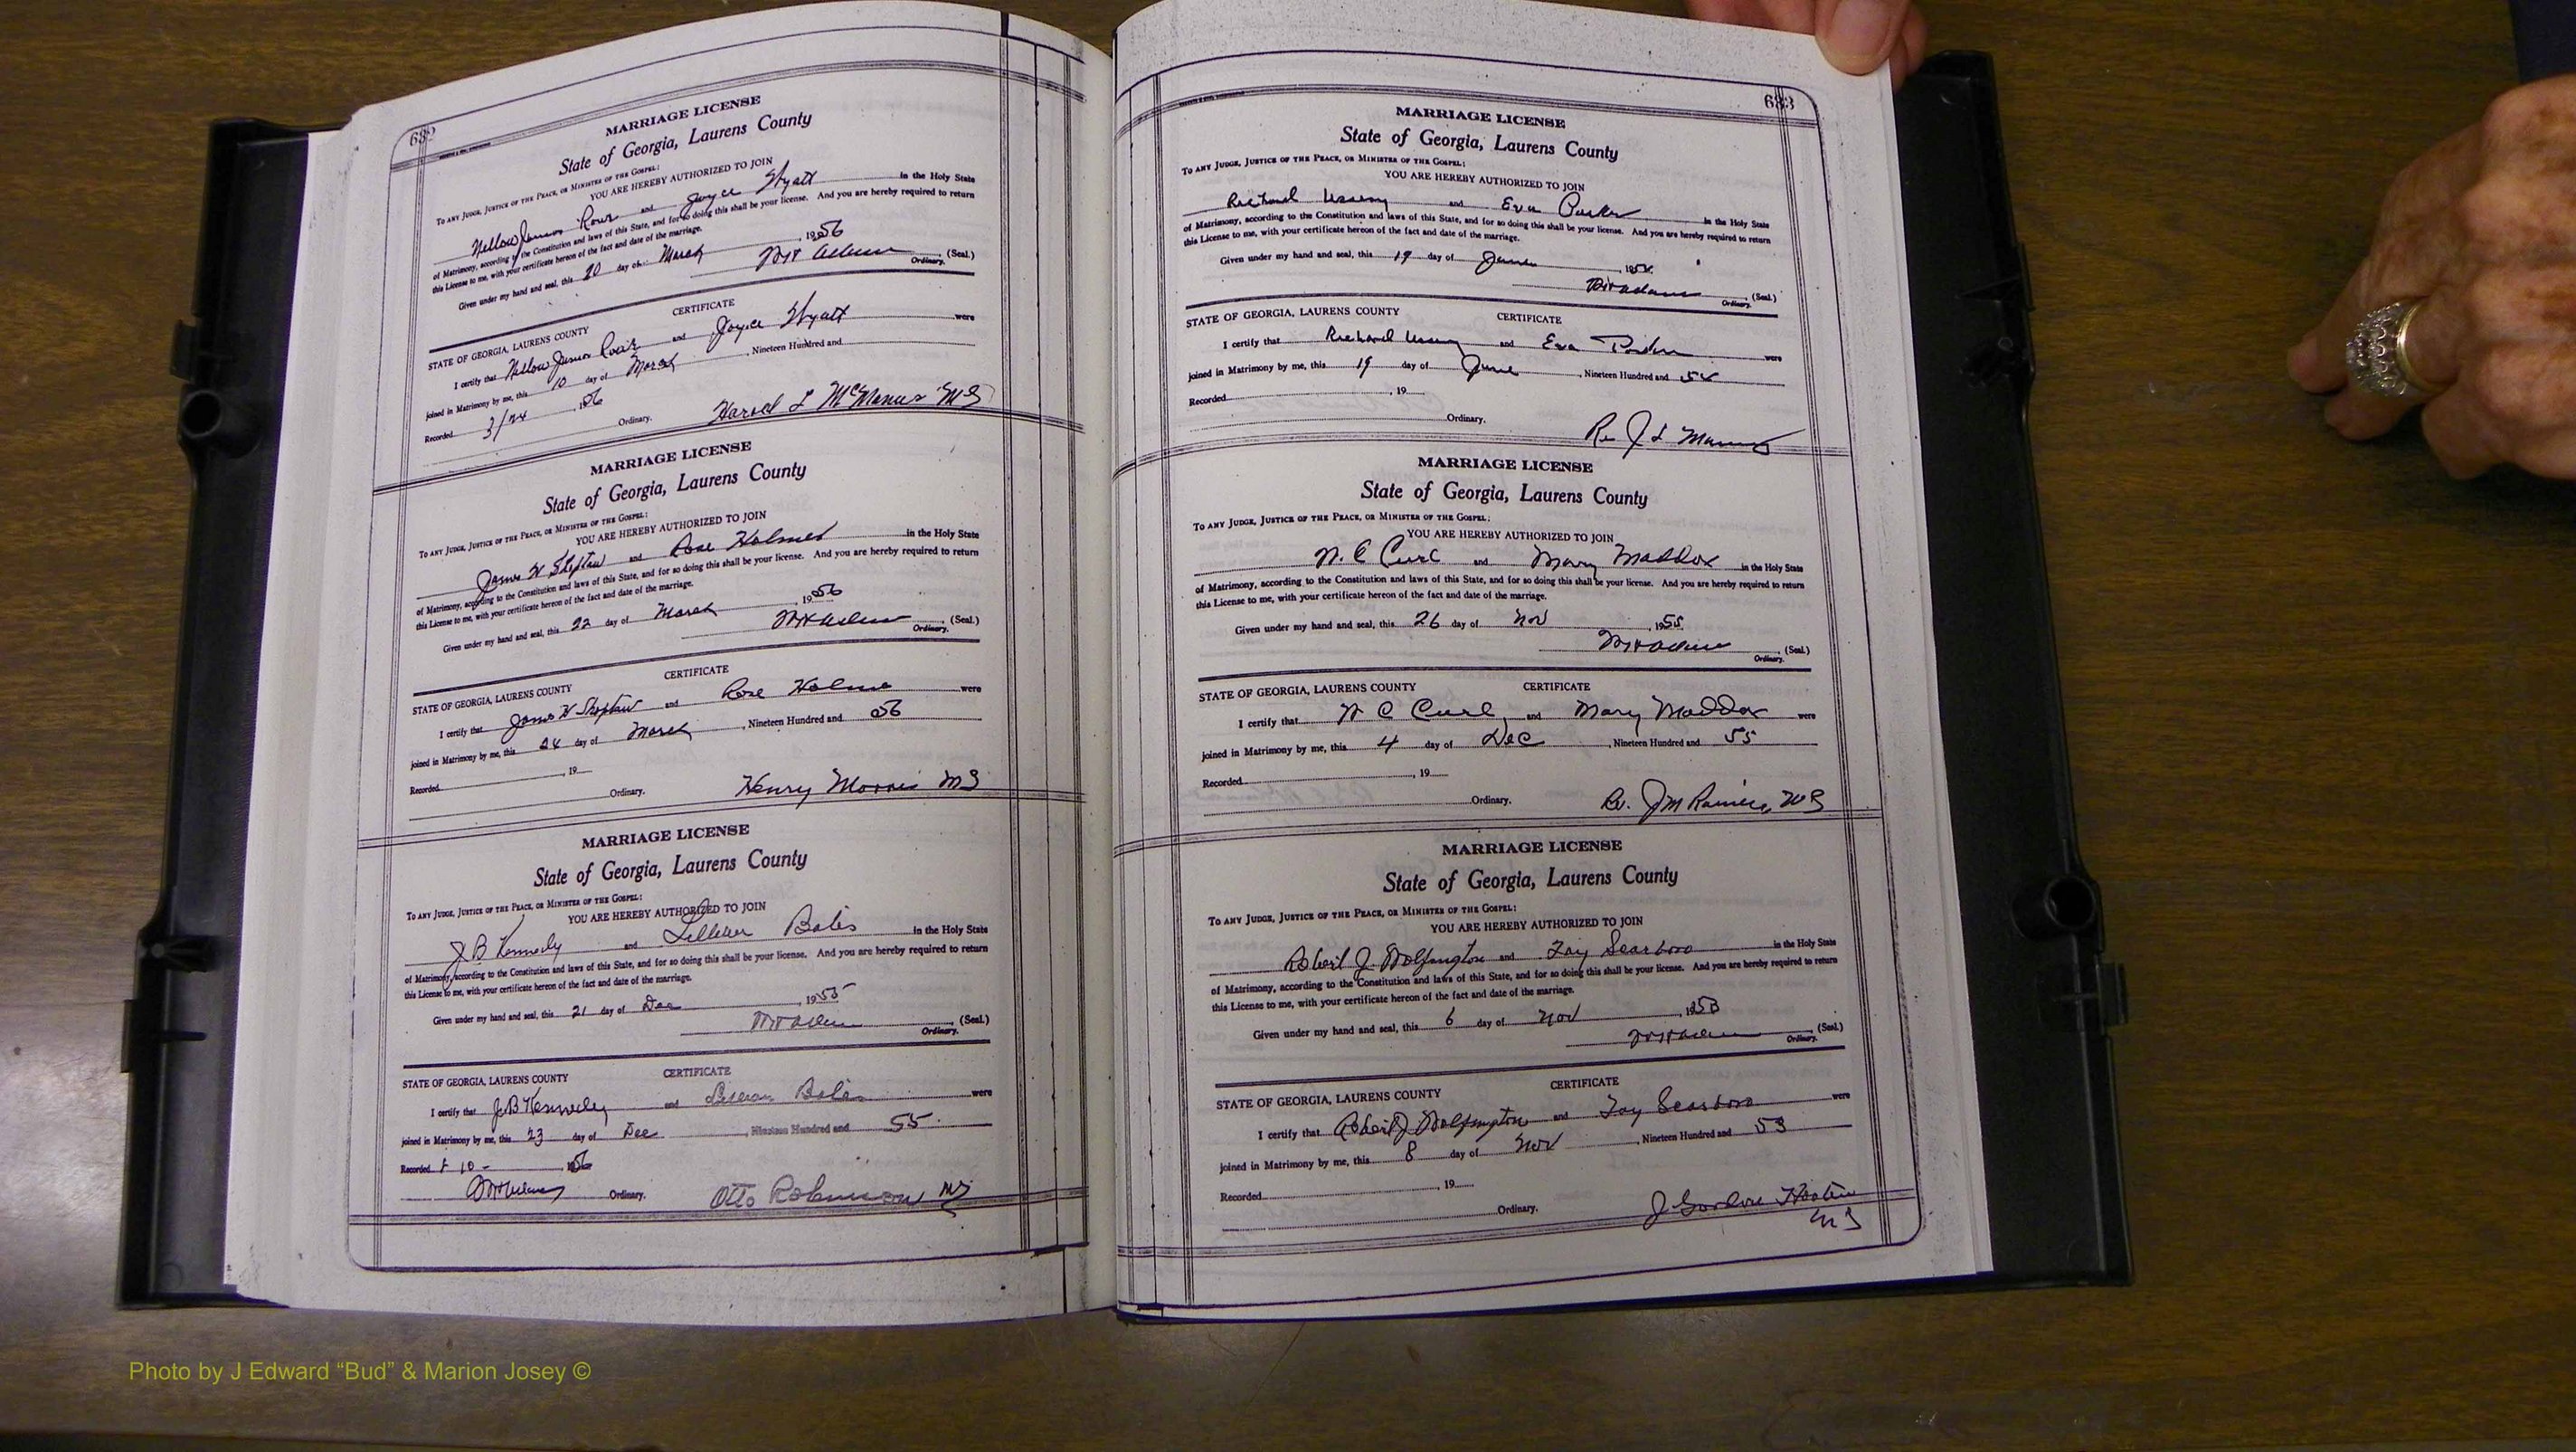 MARRIAGE LICENSE
State of Georgia, Laurens County
TO ANY JUDGE, JUSTICE OF THE PEACE, OR MINISTER OF THE GOSPEL:
YOU ARE HEREBY AUTHORIZED TO JOIN
and Joyce Hyatt in the Holy State
of Matrimony, according to the Constitution and laws of this State, and for so doing this shall be your license. And you are hereby required to return
this License to me, with your certificate hereon of the fact and date of the marriage.
Given under my hand and seal, this 10 day of March, 1956
(Seal.)
Ordinary.
CERTIFICATE
STATE OF GEORGIA, LAURENS COUNTY
I certify that and Joyce Hyatt were
joined in Matrimony by me, this 10 day of March, Nineteen Hundred and
Recorded 3/24, 1956
Ordinary. Harold L McManus MG
MARRIAGE LICENSE
State of Georgia, Laurens County
TO ANY JUDGE, JUSTICE OF THE PEACE, OR MINISTER OF THE GOSPEL:
YOU ARE HEREBY AUTHORIZED TO JOIN
James W and Rose Holmes in the Holy State
of Matrimony, according to the Constitution and laws of this State, and for so doing this shall be your license. And you are hereby required to return
this License to me, with your certificate hereon of the fact and date of the marriage.
Given under my hand and seal, this 22 day of March, 1956
(Seal.)
Ordinary.
CERTIFICATE
STATE OF GEORGIA, LAURENS COUNTY
I certify that James W and Rose Holmes were
joined in Matrimony by me, this 24 day of March, Nineteen Hundred and 56
Recorded, 19
Ordinary. Henry Morris MG
MARRIAGE LICENSE
State of Georgia, Laurens County
TO ANY JUDGE, JUSTICE OF THE PEACE, OR MINISTER OF THE GOSPEL:
YOU ARE HEREBY AUTHORIZED TO JOIN
J B Kennedy and in the Holy State
of Matrimony, according to the Constitution and laws of this State, and for so doing this shall be your license. And you are hereby required to return
this License to me, with your certificate hereon of the fact and date of the marriage.
Given under my hand and seal, this 21 day of Dec, 1955
(Seal.)
Ordinary.
CERTIFICATE
STATE OF GEORGIA, LAURENS COUNTY
I certify that J B Kennedy and were
joined in Matrimony by me, this 23 day of Dec, Nineteen Hundred and 55.
Recorded 10 -, 1956
Ordinary. Otto Robinson MG
683
MARRIAGE LICENSE
State of Georgia, Laurens County
TO ANY JUDGE, JUSTICE OF THE PEACE, OR MINISTER OF THE GOSPEL:
YOU ARE HEREBY AUTHORIZED TO JOIN
Richard Ussery and Eva Parker in the Holy State
of Matrimony, according to the Constitution and laws of this State, and for so doing this shall be your license. And you are hereby required to return
this License to me, with your certificate hereon of the fact and date of the marriage.
Given under my hand and seal, this 19 day of June, 1954
(Seal.)
Ordinary.
CERTIFICATE
STATE OF GEORGIA, LAURENS COUNTY
I certify that Richard Ussery and Eva Parker were
joined in Matrimony by me, this 19 day of June, Nineteen Hundred and 54
Recorded, 19
Ordinary.
MARRIAGE LICENSE
State of Georgia, Laurens County
TO ANY JUDGE, JUSTICE OF THE PEACE, OR MINISTER OF THE GOSPEL:
YOU ARE HEREBY AUTHORIZED TO JOIN
C Curl and Mary Maddox in the Holy State
of Matrimony, according to the Constitution and laws of this State, and for so doing this shall be your license. And you are hereby required to return
this License to me, with your certificate hereon of the fact and date of the marriage.
Given under my hand and seal, this 26 day of Nov, 1955
(Seal.)
Ordinary.
CERTIFICATE
STATE OF GEORGIA, LAURENS COUNTY
I certify that C Curl, and Mary Maddox were
joined in Matrimony by me, this 4 day of Dec, Nineteen Hundred and 55
Recorded, 19
Ordinary. Rev. J M
MARRIAGE LICENSE
State of Georgia, Laurens County
TO ANY JUDGE, JUSTICE OF THE PEACE, OR MINISTER OF THE GOSPEL:
YOU ARE HEREBY AUTHORIZED TO JOIN
Robert J. Wolfington and Fay Scarboro in the Holy State
of Matrimony, according to the Constitution and laws of this State, and for so doing this shall be your license. And you are hereby required to return
this License to me, with your certificate hereon of the fact and date of the marriage.
Given under my hand and seal, this 6 day of Nov, 1953
(Seal.)
Ordinary.
CERTIFICATE
STATE OF GEORGIA, LAURENS COUNTY
I certify that Robert J Wolfington and Fay Scarboro were
joined in Matrimony by me, this 8 day of Nov, Nineteen Hundred and 53
Recorded, 19
Ordinary. J Gordon
MG
Photo by J Edward “Bud” & Marion Josey ©